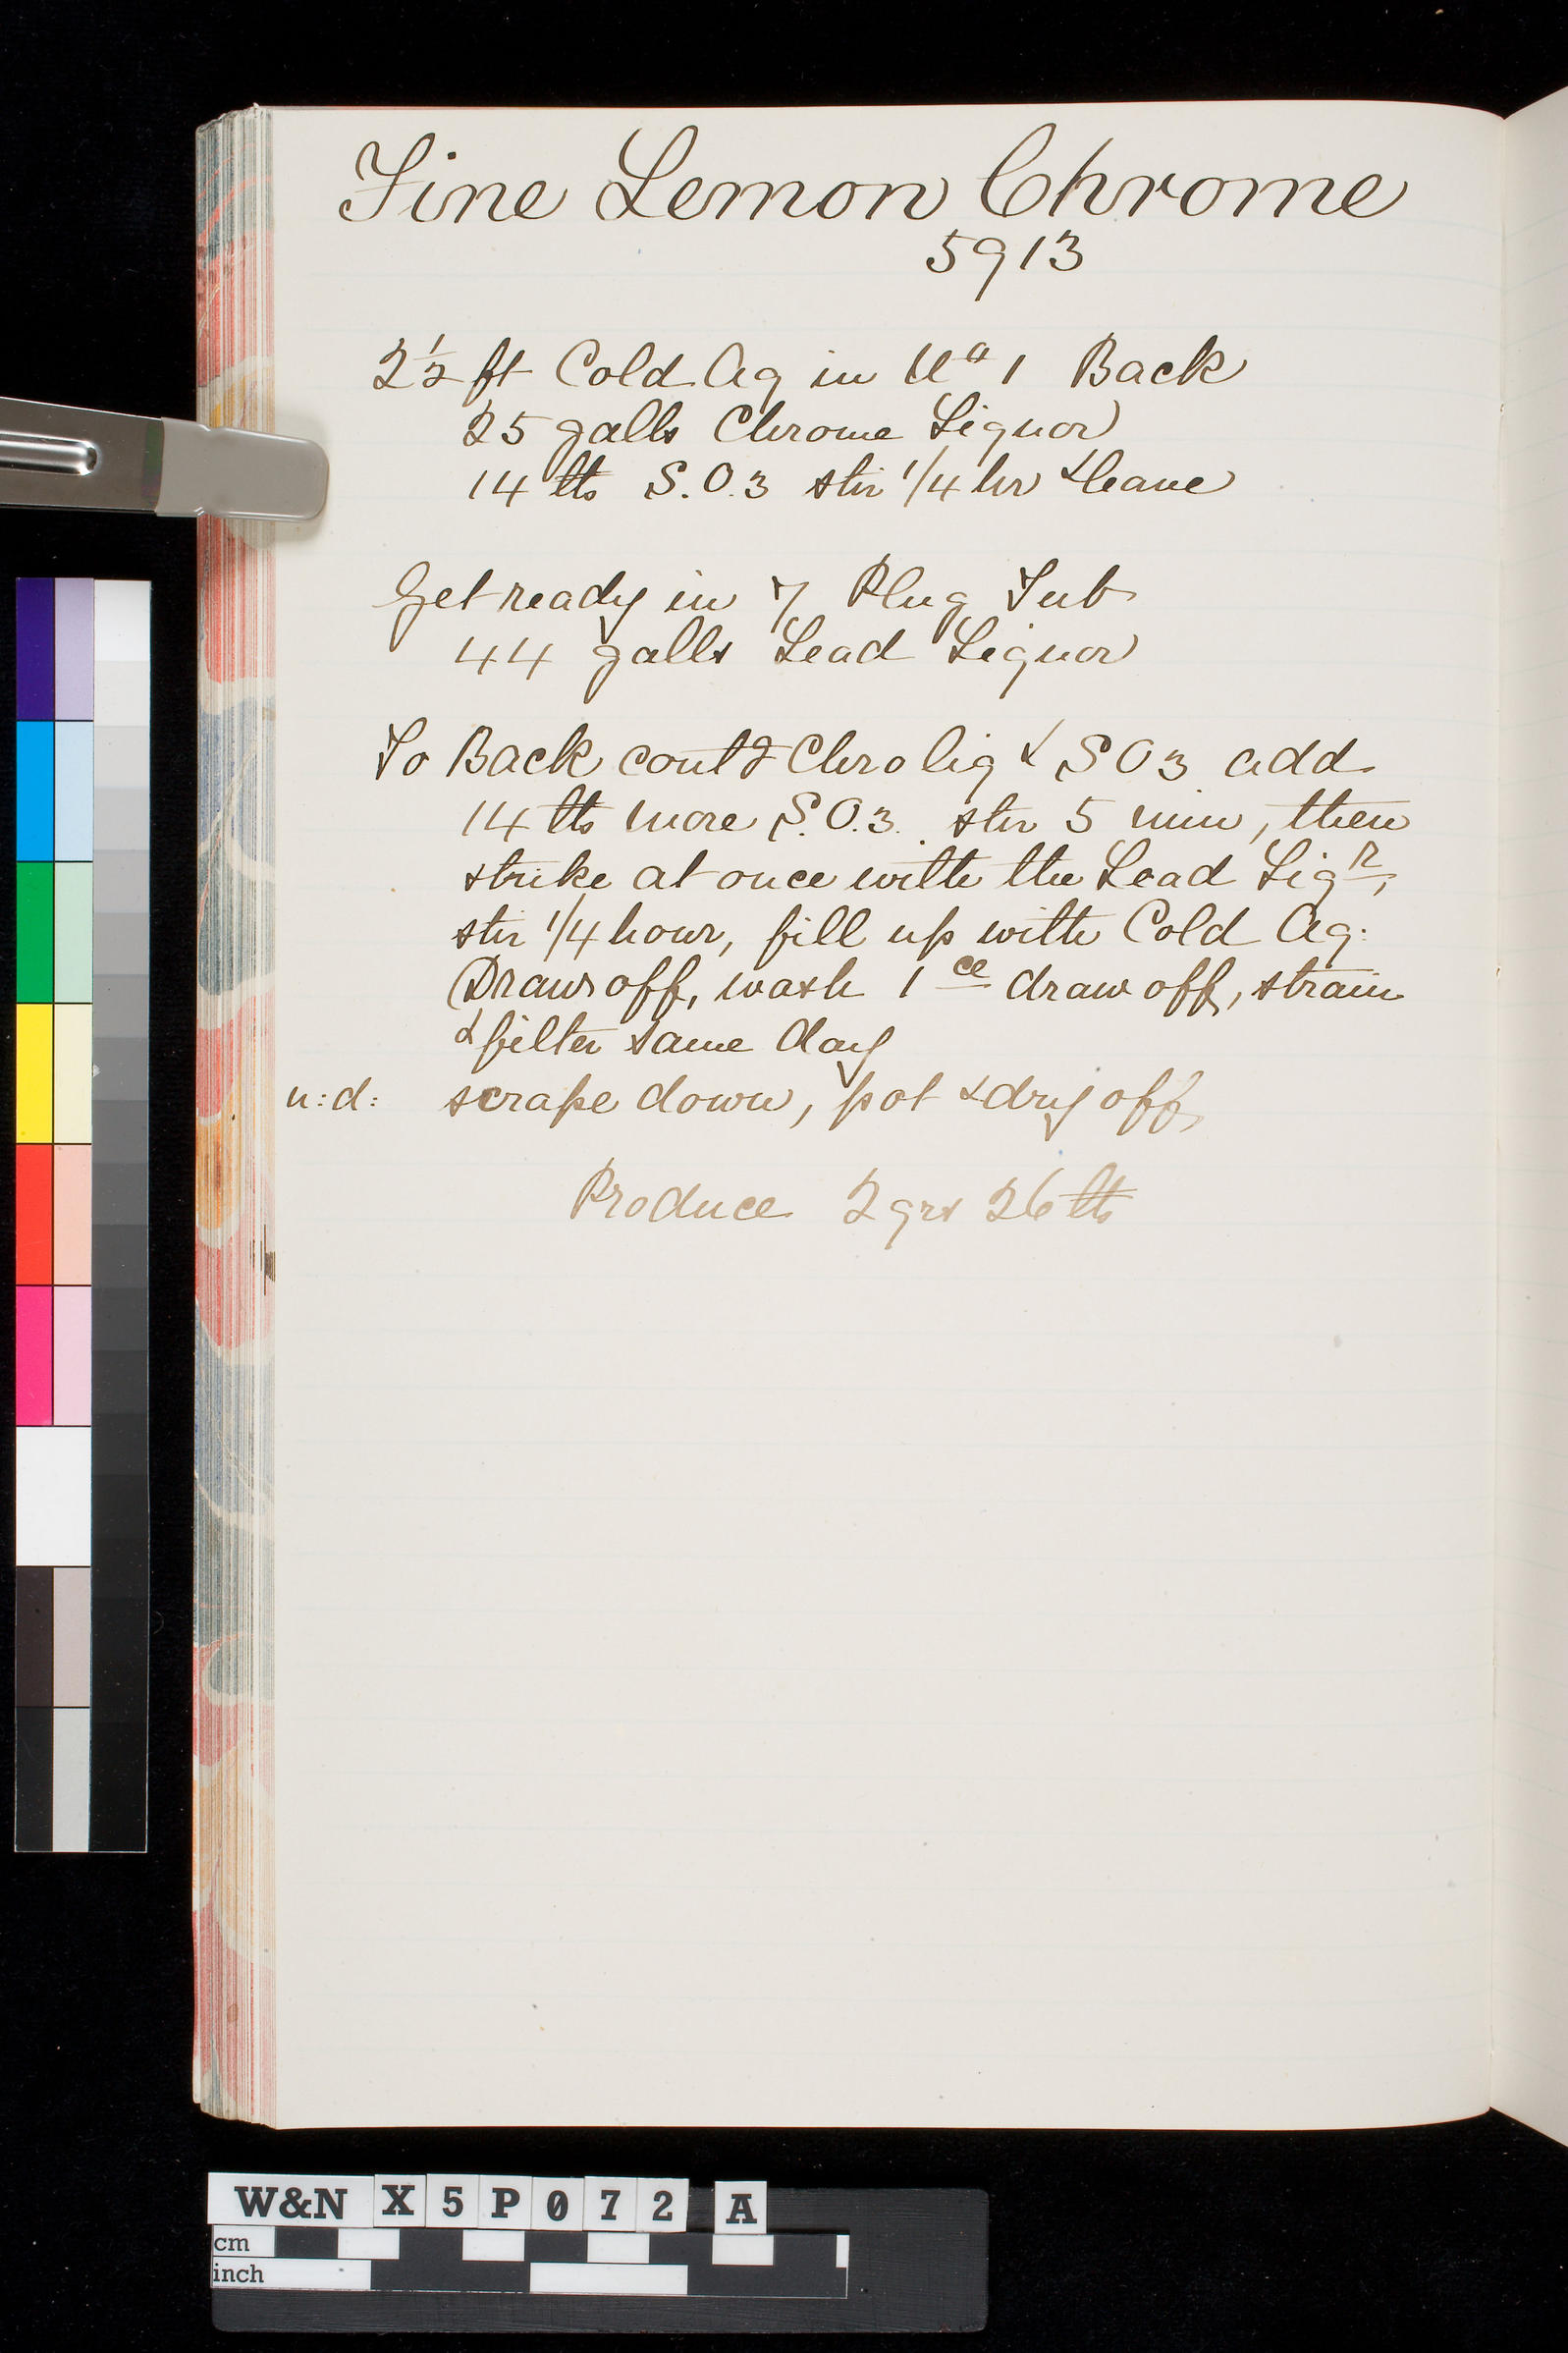 Fine Lemon Chrome
5913
2½ ft Cold Aq in No 1 Back
25 galls Chrome Liquor
14 lbs S.O.3 stir 1/4 hr & leave
Get ready in 7 Plug Tub
44 galls Lead Liquor
To Back contg Chro liq & SO3 add
14 lbs more S.O.3. stir 5 min, then
strike at once with the Lead Liqr,
stir 1/4 hour, fill up with Cold Aq:
Draw off, wash 1ce draw off, strain
& filter same day
n:d: scrape down, pot & dry off,
Produce 2 qrs 26 lbs
W&N X5P072 A
cm
inch